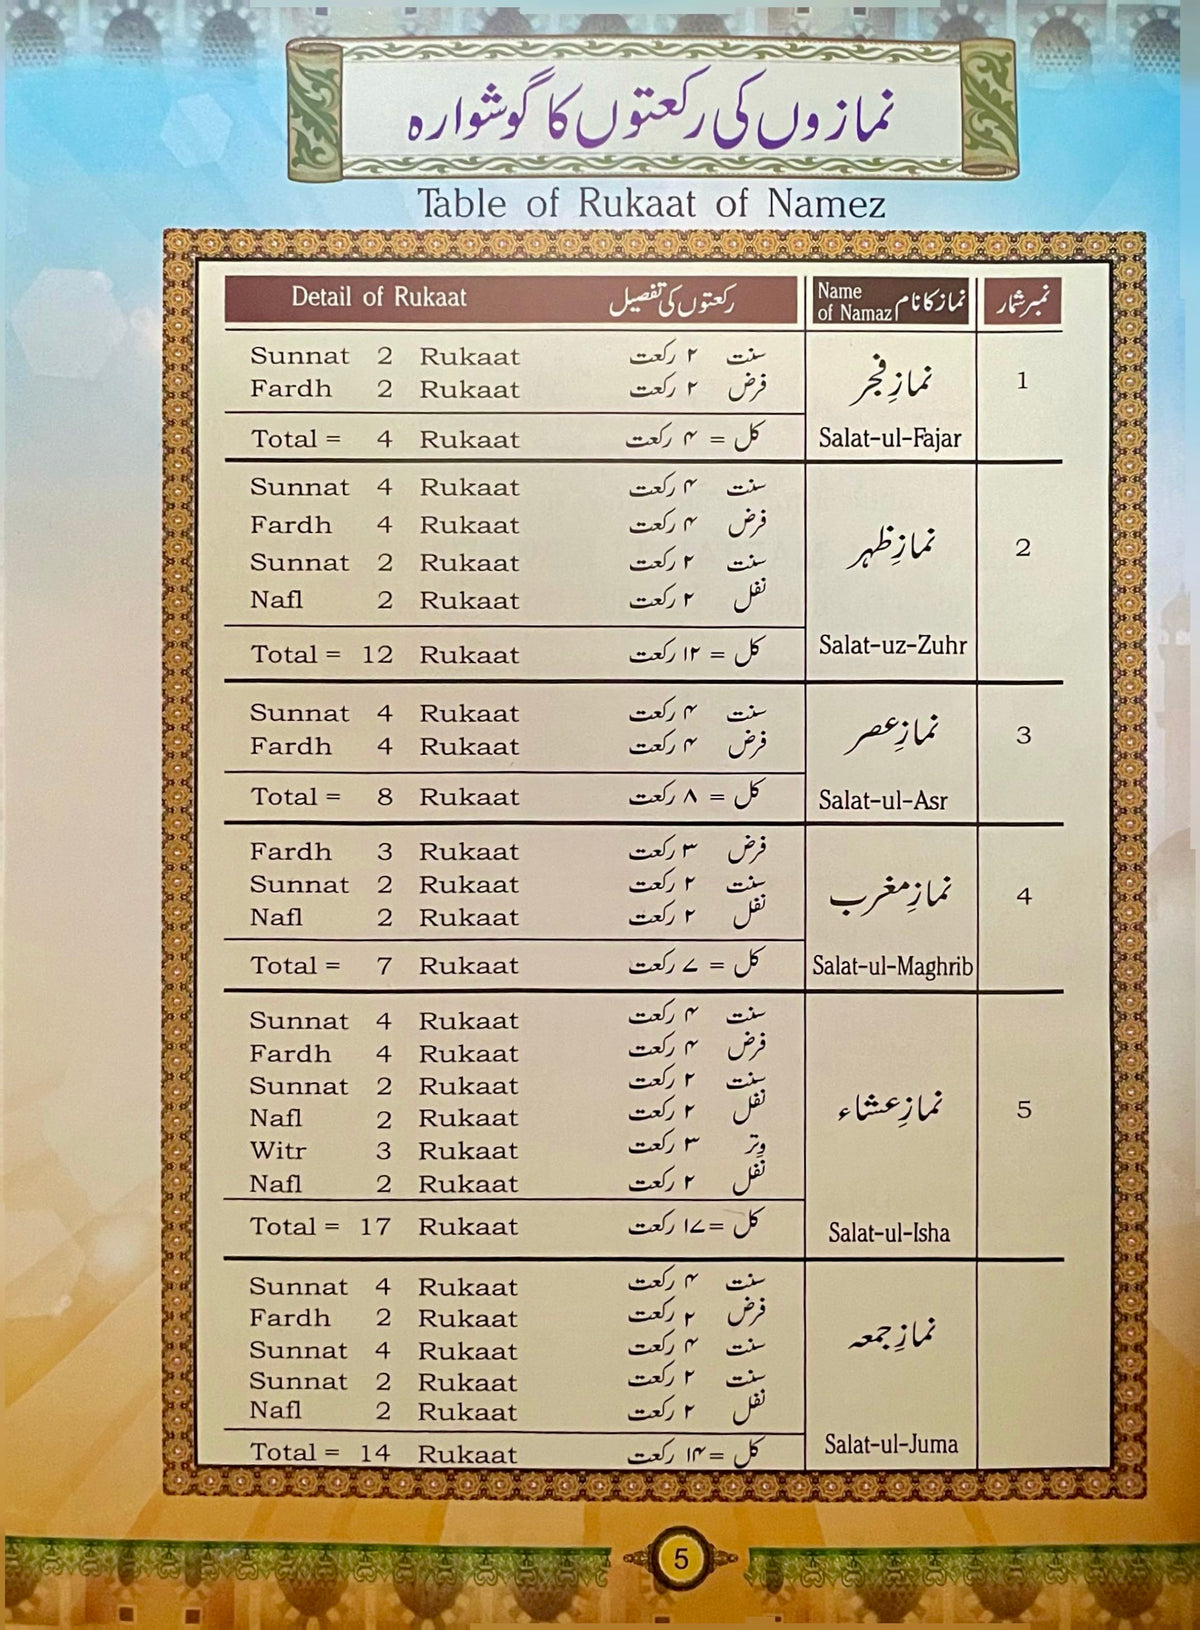 نمازوں کی رکعتوں کا گوشوارہ
Table of Rukaat of Namez
Detail of Rukaat رکعتوں کی تفصیل Name of Namaz نماز کا نام نمبر شمار
Sunnat 2 Rukaat سنت ۲ رکعت
Fardh 2 Rukaat فرض ۲ رکعت
نمازِ فجر 1
Total = 4 Rukaat کل = ۴ رکعت Salat-ul-Fajar
Sunnat 4 Rukaat سنت ۴ رکعت
Fardh 4 Rukaat فرض ۴ رکعت
نمازِ ظہر 2
Sunnat 2 Rukaat سنت ۲ رکعت
Nafl 2 Rukaat نفل ۲ رکعت
Total = 12 Rukaat کل = ۱۲ رکعت Salat-uz-Zuhr
Sunnat 4 Rukaat سنت ۴ رکعت
نمازِ عصر 3
Fardh 4 Rukaat فرض ۴ رکعت
Total = 8 Rukaat کل = ۸ رکعت Salat-ul-Asr
Fardh 3 Rukaat فرض ۳ رکعت
Sunnat 2 Rukaat سنت ۲ رکعت
نمازِ مغرب 4
Nafl 2 Rukaat نفل ۲ رکعت
Total = 7 Rukaat کل = ۷ رکعت Salat-ul-Maghrib
Sunnat 4 Rukaat سنت ۴ رکعت
Fardh 4 Rukaat فرض ۴ رکعت
Sunnat 2 Rukaat سنت ۲ رکعت
Nafl 2 Rukaat نفل ۲ رکعت
نمازِ عشاء 5
Witr 3 Rukaat وتر ۳ رکعت
Nafl 2 Rukaat نفل ۲ رکعت
Total = 17 Rukaat کل = ۱۷ رکعت Salat-ul-Isha
Sunnat 4 Rukaat سنت ۴ رکعت
Fardh 2 Rukaat فرض ۲ رکعت
نمازِ جمعہ
Sunnat 4 Rukaat سنت ۴ رکعت
Sunnat 2 Rukaat سنت ۲ رکعت
Nafl 2 Rukaat نفل ۲ رکعت
Total = 14 Rukaat کل = ۱۴ رکعت Salat-ul-Juma
5